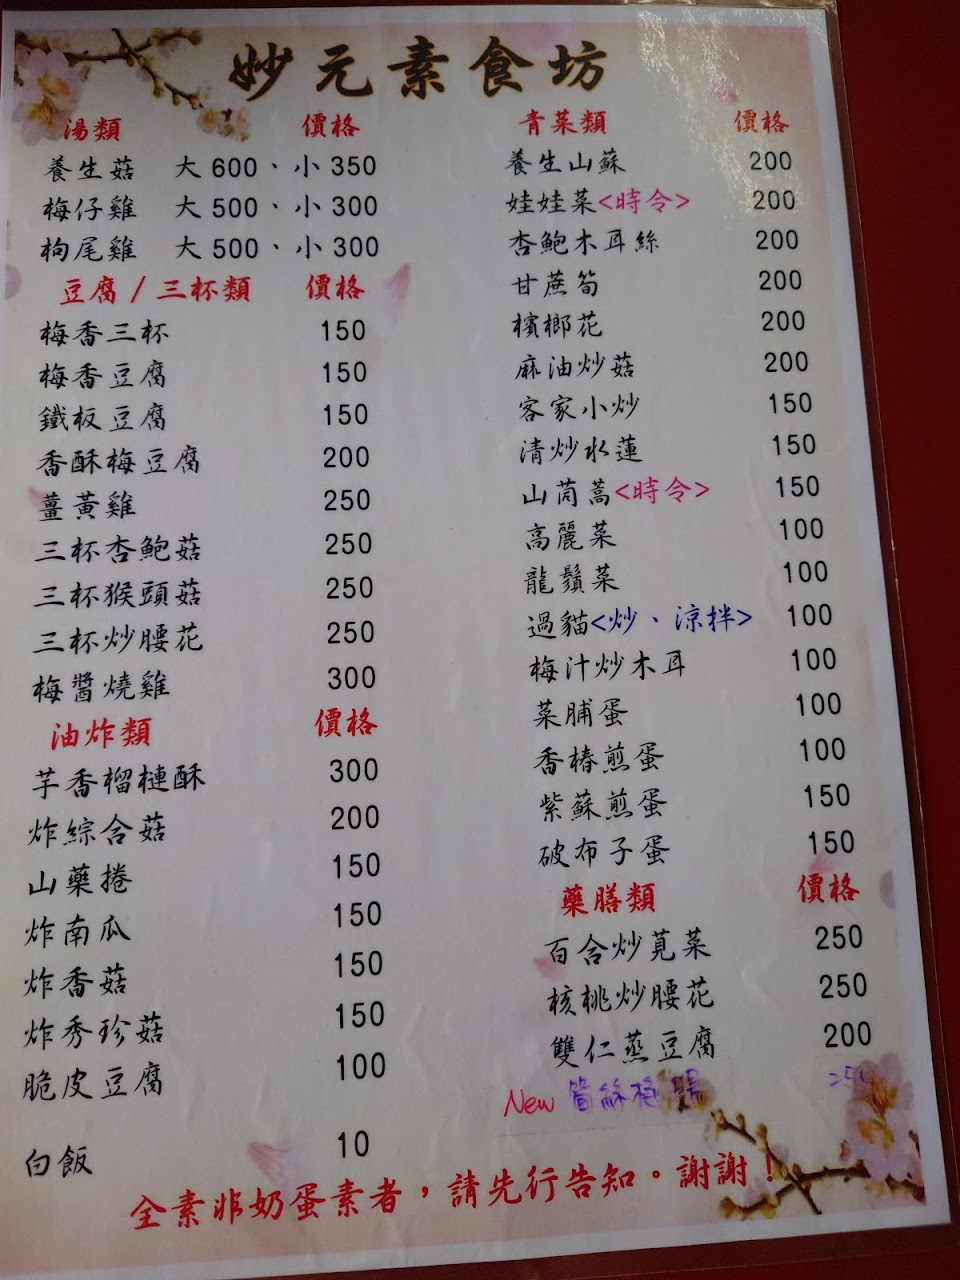 妙元素食坊
湯類 價格
養生菇 大600、小350
梅仔雞 大500、小300
枸尾雞 大500、小300
豆腐/三杯類 價格
梅香三杯 150
梅香豆腐 150
鐵板豆腐 150
香酥梅豆腐 200
薑黃雞 250
三杯杏鮑菇 250
三杯猴頭菇 250
三杯炒腰花 250
梅醬燒雞 300
油炸類 價格
芋香榴槤酥 300
炸綜合菇 200
山藥捲 150
炸南瓜 150
炸香菇 150
炸秀珍菇 150
脆皮豆腐 100
白飯 10
青菜類 價格
養生山蘇 200
娃娃菜<時令> 200
杏鮑木耳絲 200
甘蔗筍 200
檳榔花 200
麻油炒菇 200
客家小炒 150
清炒水蓮 150
山茼蒿<時令> 150
高麗菜 100
龍鬚菜 100
過貓<炒、涼拌> 100
梅汁炒木耳 100
菜脯蛋 100
香椿煎蛋 100
紫蘇煎蛋 150
破布子蛋 150
藥膳類 價格
百合炒莧菜 250
核桃炒腰花 250
雙仁蒸豆腐 200
New 筍絲梅 湯
全素非奶蛋素者,請先行告知。謝謝!